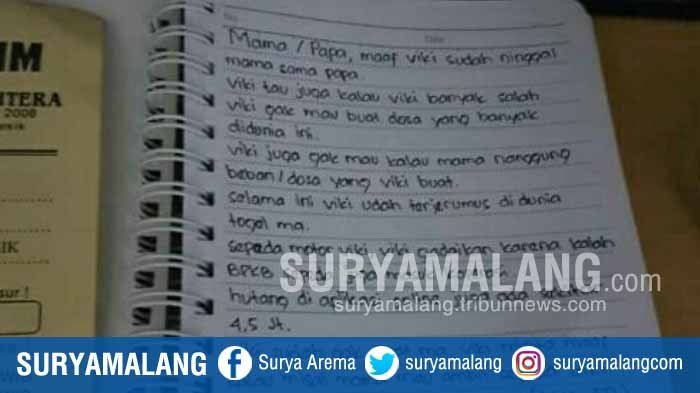 No.
Date
Mama / Papa, maaf viki sudah ninggal
mama sama papa.
Viki tau juga kalau viki banyak salah
viki gak mau buat dosa yang banyak
didunia ini.
viki juga gak mau kalau mama nanggung
beban / dosa yang viki buat.
selama ini viki udah terjerumus di dunia
togel ma.
sepeda motor viki, viki gadaikan karena kalah
BPKB
hutang di aplikasi
4,5 Jt.
IM
HTERA
2008
IK
sur!
SURYAMALANG.com
suryamalang.tribunnews.com
SURYAMALANG
Surya Arema
suryamalang
suryamalangcom